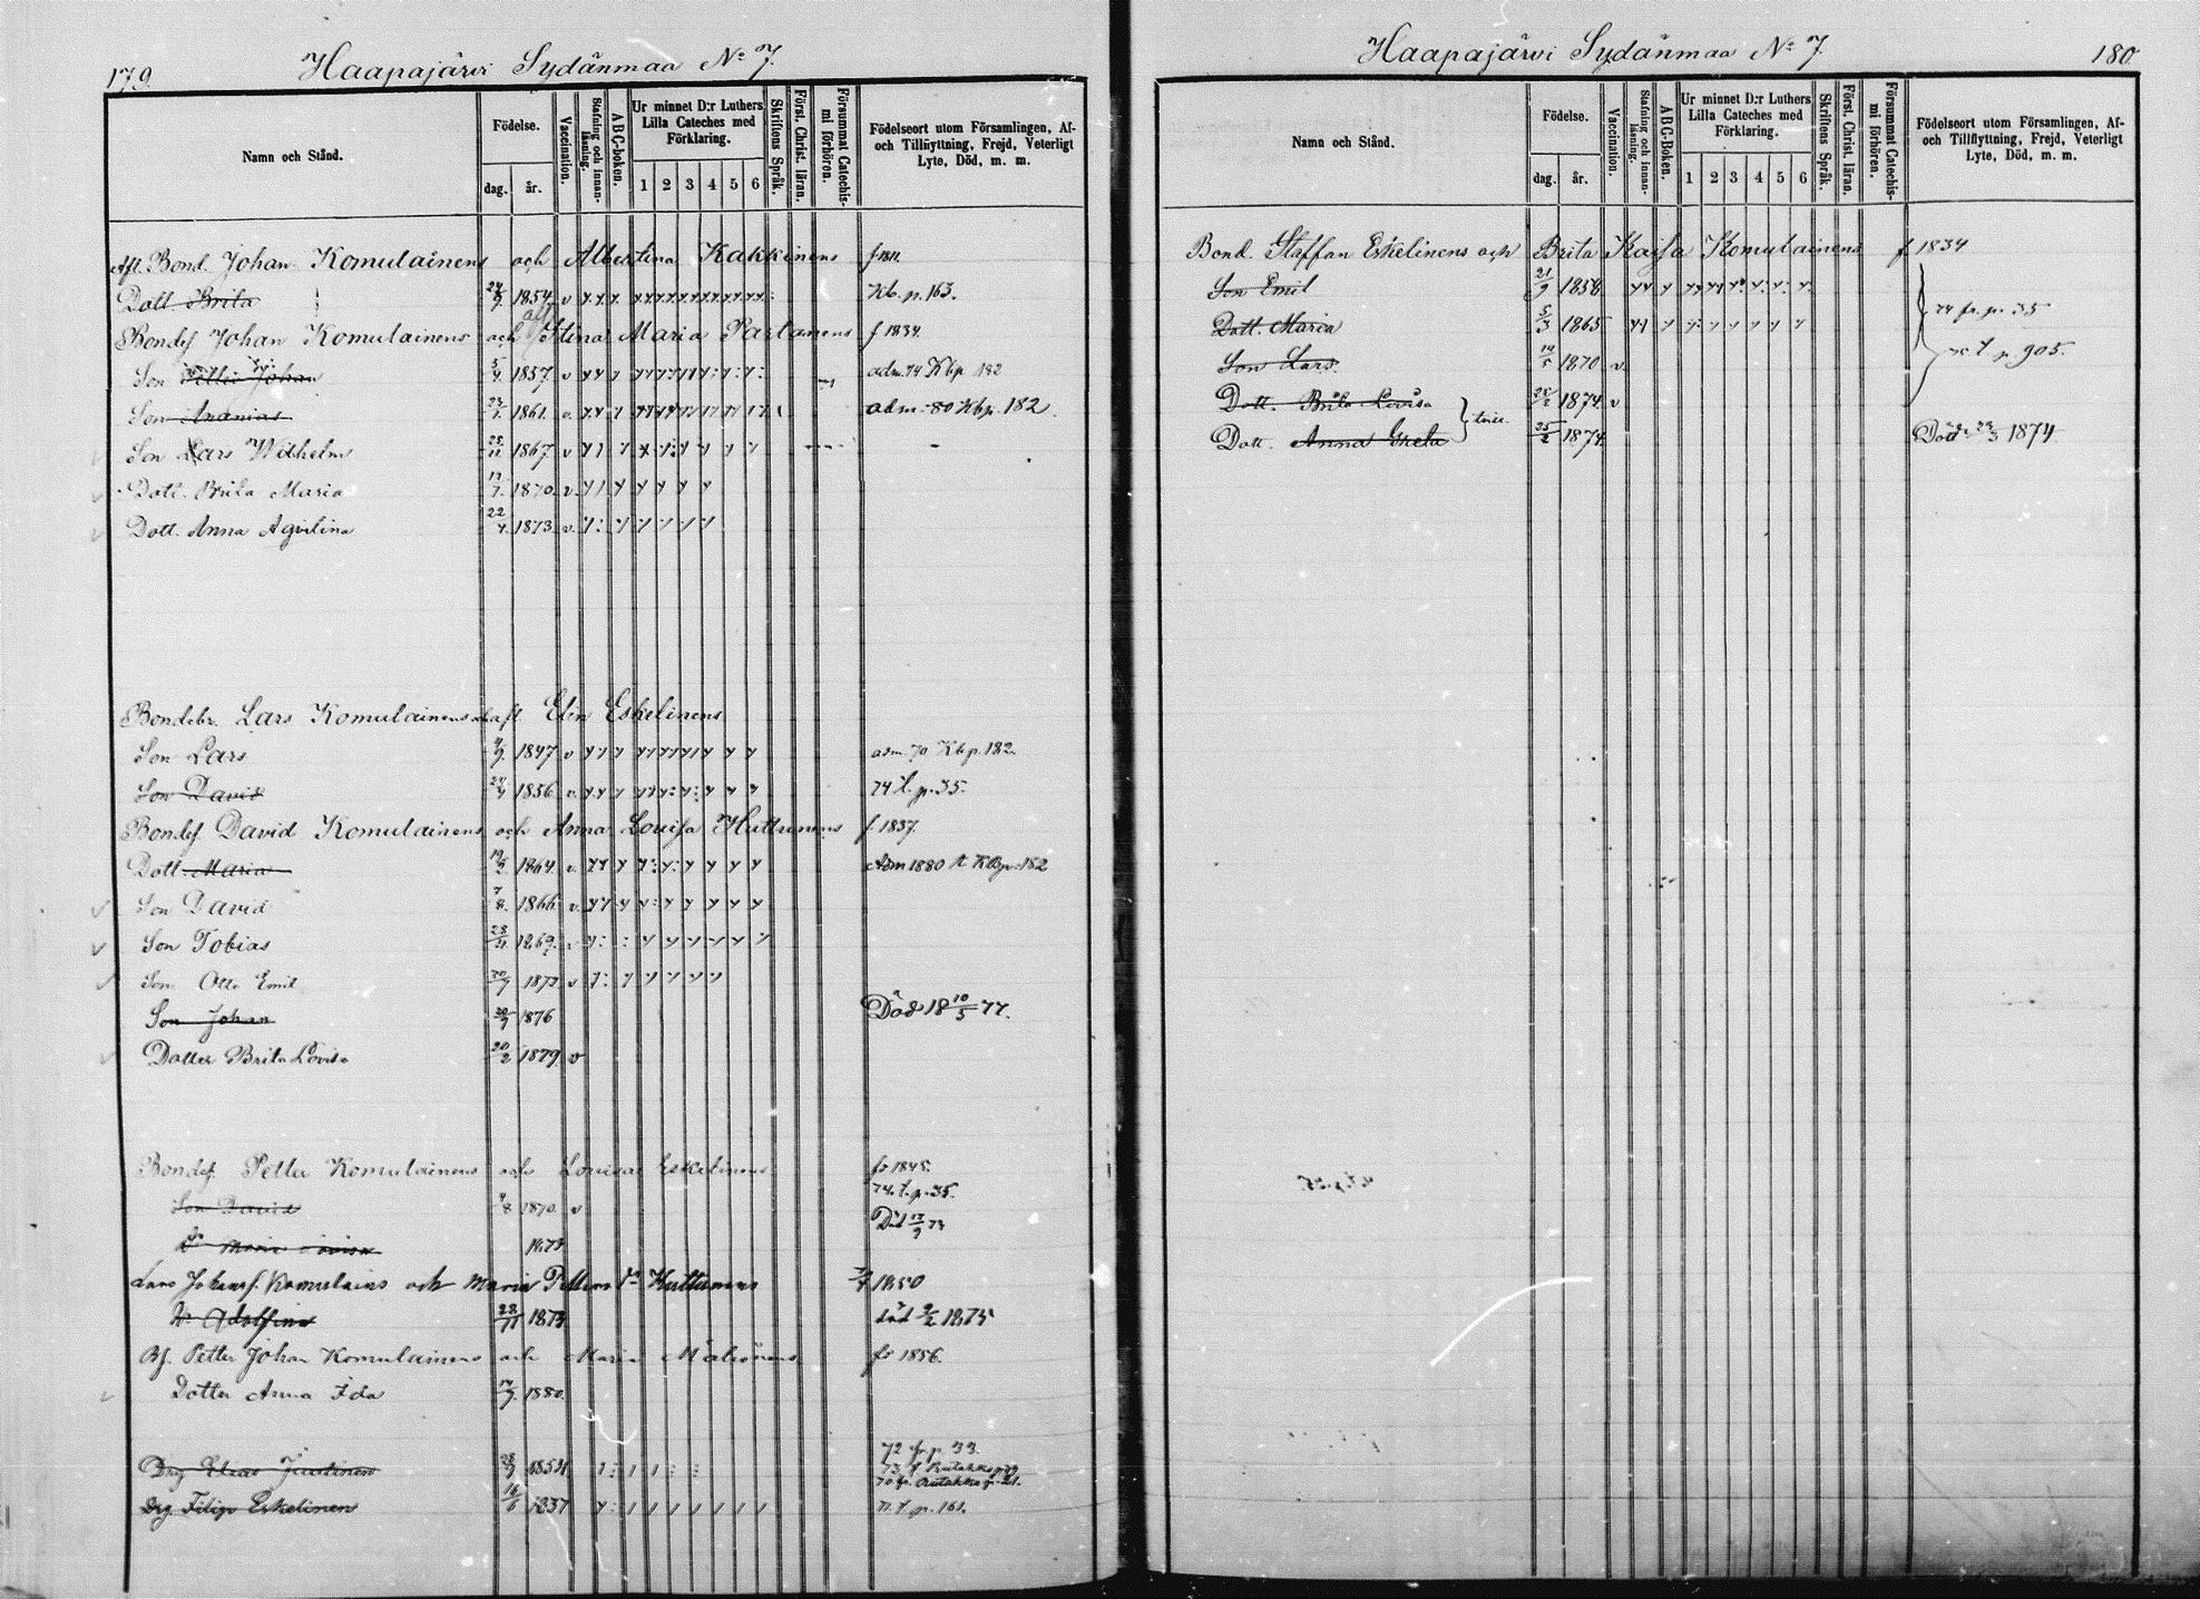 179.
Haapajärvi Sydänmaa No 7.
Namn och Stånd.
Födelse.
dag. år.
Vaccination.
Stafning och innan-läsning.
ABC-boken.
Ur minnet D:r Luthers Lilla Cateches med Förklaring.
1 2 3 4 5 6
Skriftens Språk.
Först. Christ. läran.
Försummat Catechismi förhören.
Födelseort utom Församlingen, Af- och Tillflyttning, Frejd, Veterligt Lyte, Död, m. m.
Afl. Bond. Johan Komulainens och Albertina Kakkinens f 1811.
Dott Brita 24/9. 1854. v Kb. p. 163.
Bondes Johan Komulainens och Stina Maria Partanens f 1834.
Son Petter Johan 5/4. 1857. v adm. 74 Kbp 182
Son Ananias 23/1. 1861. v. adm. 80 Kbp. 182.
Son Lars Wilhelm 25/11 1867 v
Dott. Brita Maria 17/7. 1870. v.
Dott. Anna Aqvilina 22/4. 1873. v.
Bondebr. Lars Komulainens afl Elin Eskelinens
Son Lars 4/9. 1847 v adm. 70 Kbp. 182.
Son David 24/4 1856 v. 74 t. p. 35.
Bondes David Komulainens och Anna Louisa Huttunens f 1837.
Dott. Maria 19/2. 1864. v. Adm 1880 t KBp. 182
Son David 7/8. 1866 v.
Son Tobias 28/11 1869. v
Son Otto Emil 30/7 1873 v
Son Johan 20/7 1876 Död 18 10/5 77.
Dotter Brita Lovisa 20/2 1879. v
Bondes. Petter Komulainens och Lovisa Eskelinens fr 1845.
74. t. p. 35.
Son David 4/8 1870. v
Död 13/9 73
Dr Maria Lovisa 1873
Lars Johanss. Komulains och Maria Petters dr Huttunens 1850
Dr Adolfina 22/11 1873 död 9/2 1875
Bs. Petter Johan Komulainens och Maria Mälönens fr 1856.
Dotter Anna Ida 17/7. 1880.
72 fr. p. 33.
Drg Elias Juntinen 28/9 1854
70 fr. p. 21.
Drg. Filip Eskelinen 16/6 1837 71. t. p. 161.
Haapajärvi Sydänmaa No 7.
180.
Namn och Stånd.
Födelse.
dag. år.
Vaccination.
Stafning och innan-läsning.
ABC-Boken.
Ur minnet D:r Luthers Lilla Cateches med Förklaring.
1 2 3 4 5 6
Skriftens Språk.
Först. Christ. läran.
Försummat Catechismi förhören.
Födelseort utom Församlingen, Af- och Tillflyttning, Frejd, Veterligt Lyte, Död, m. m.
Bond. Staffan Eskelinens och Brita Kaisa Komulainens f 1834
Son Emil 21/9 1858.
74 fr. p. 35
Dott. Maria 5/3 1865
t. p. 905.
Son Lars. 19/5 1870 v.
Dott. Brita Lovisa 25/2 1874. v
tvill.
Dott. Anna Greta 25/2 1874. Död 23/3 1874